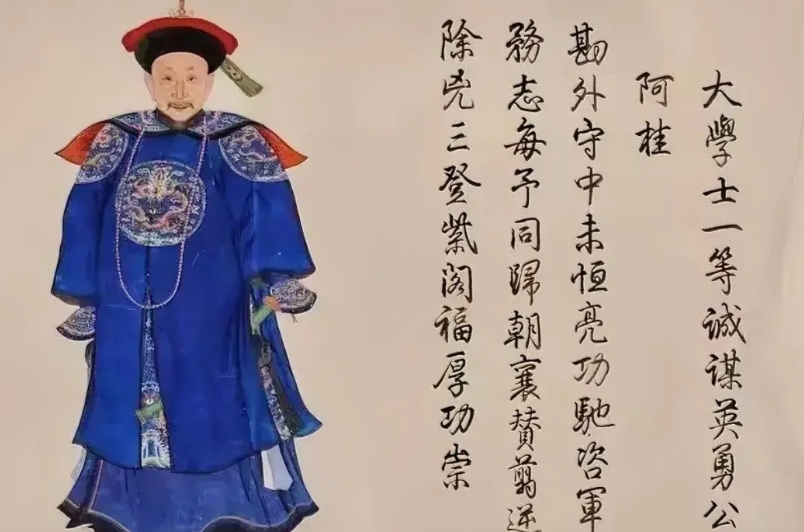 大學士一等誠謀英勇公
阿桂
勘外守中未恒亮功馳咨軍
務志每予同歸朝襄贊翦逆
除兇三登紫閣福厚功崇